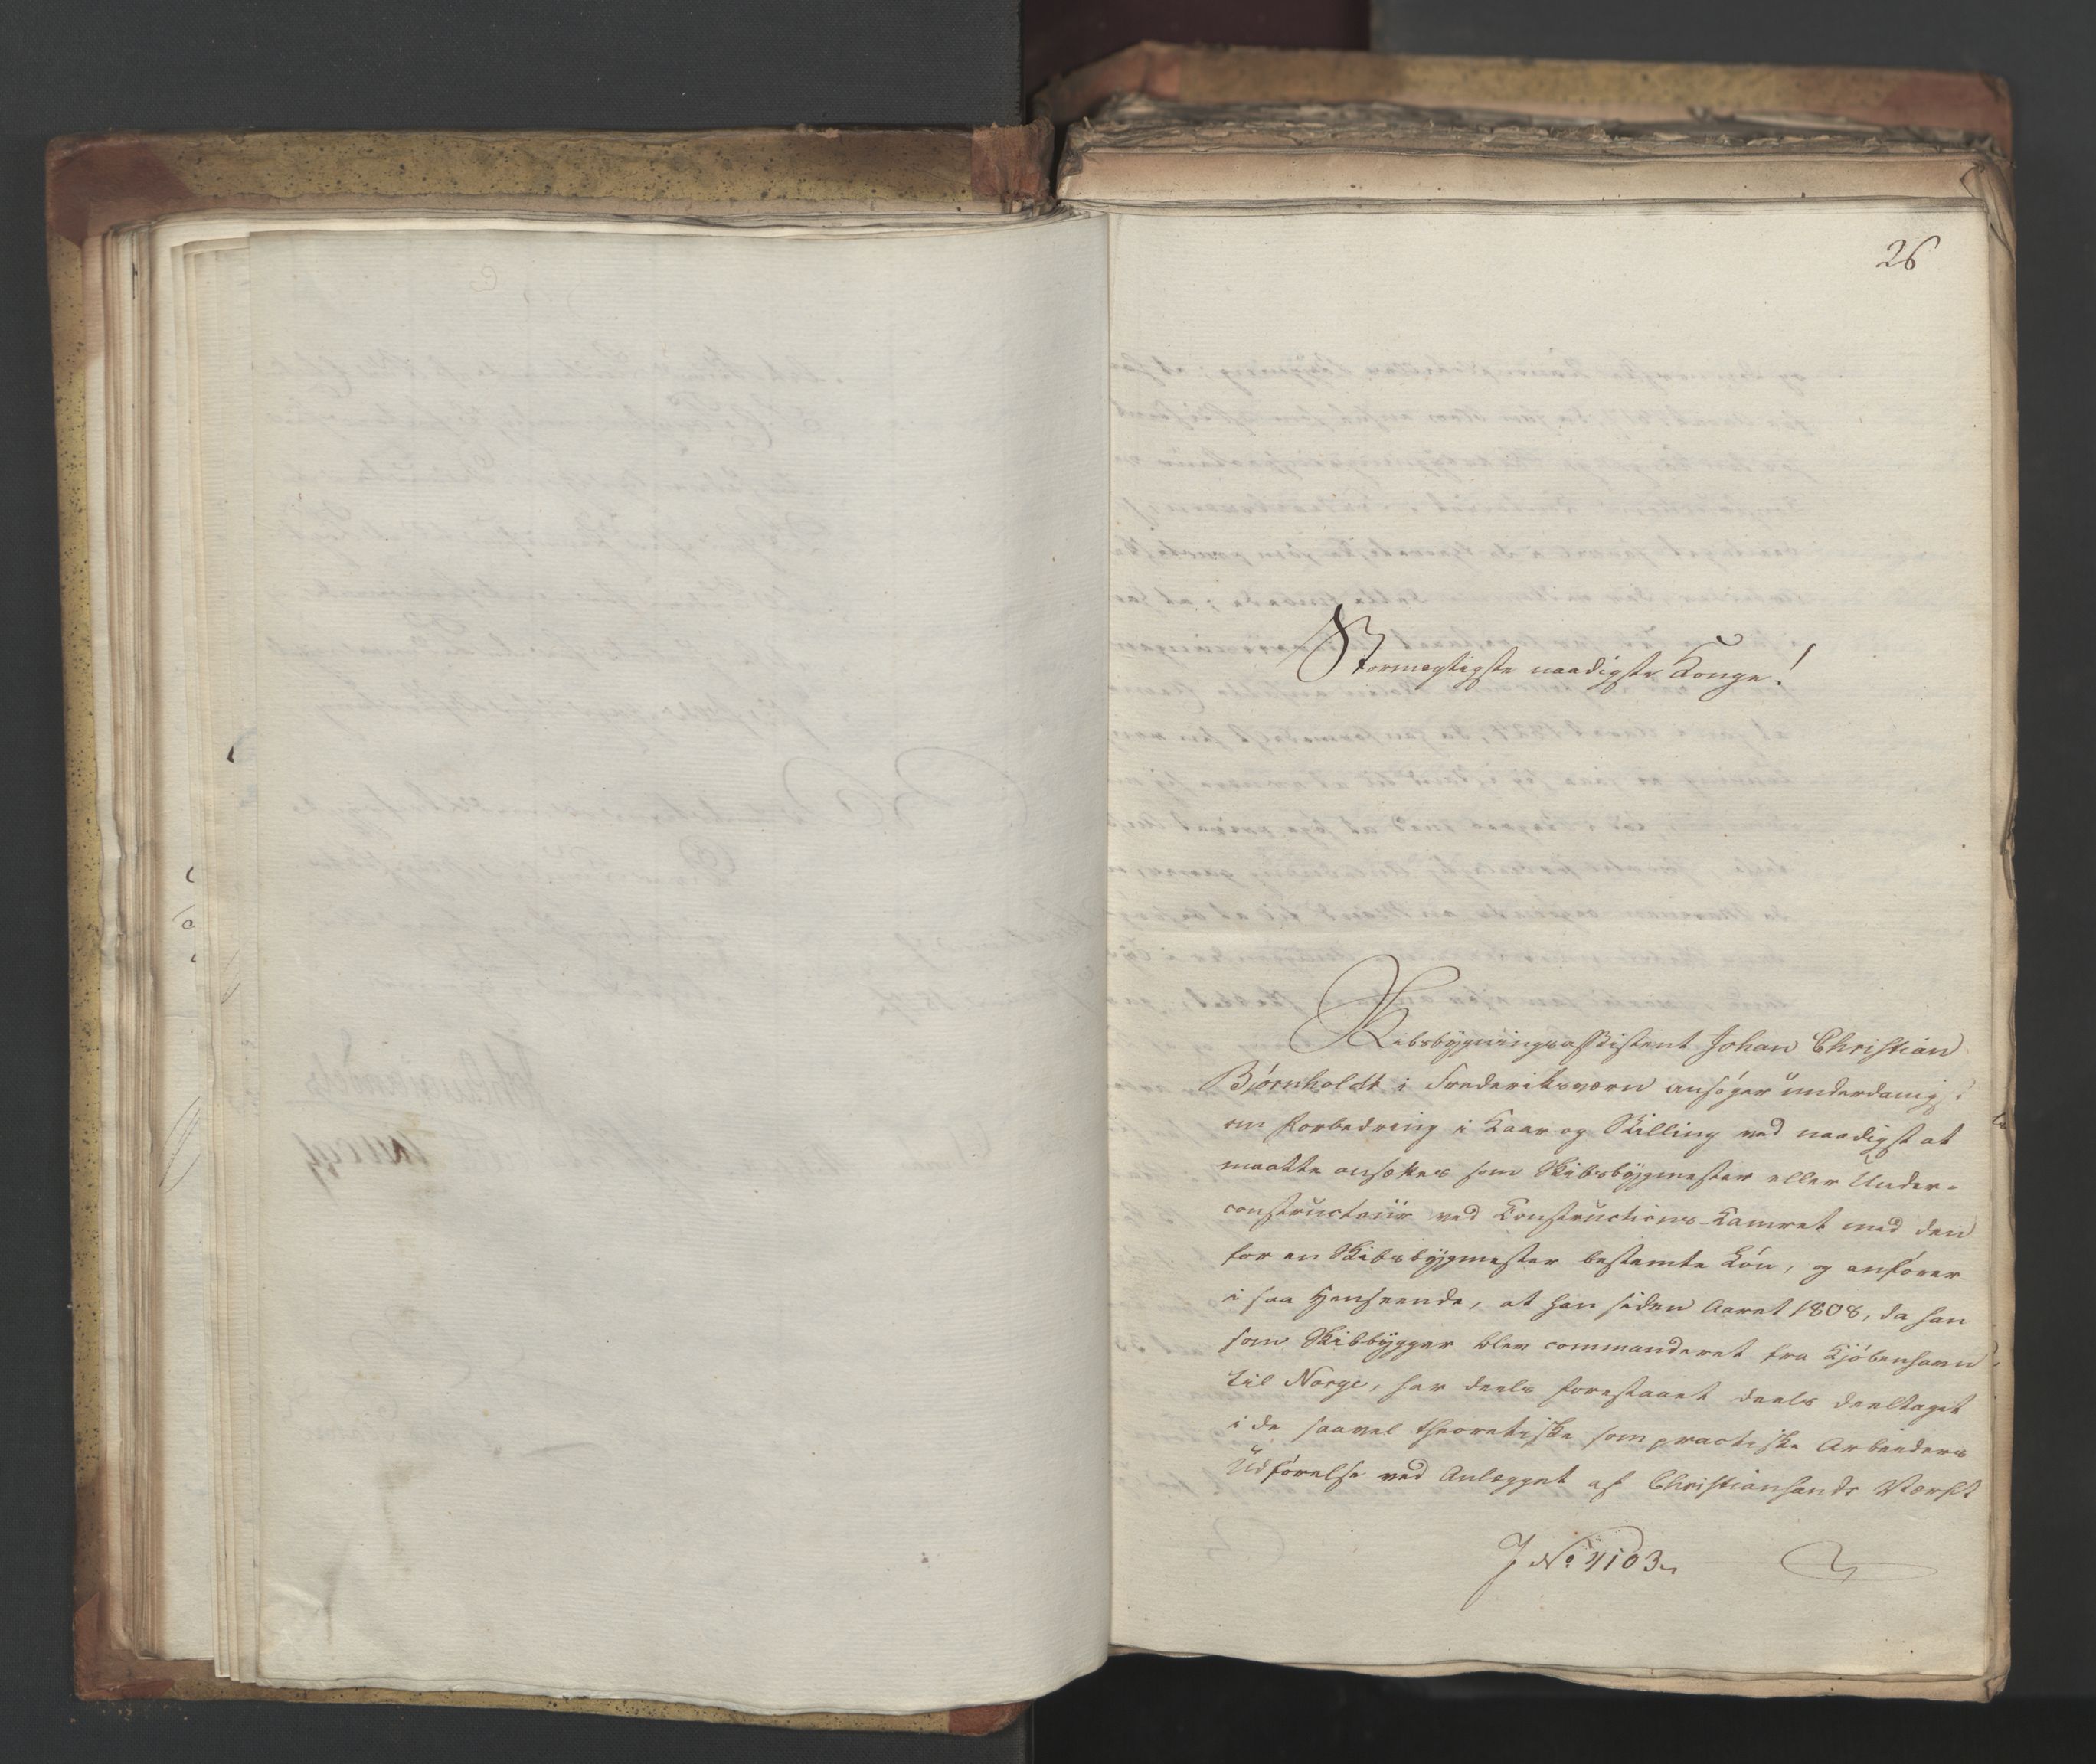 26
Stormegtigste naadigste Konge!
Skibsbygningsassistent Johan Christian
Bjørnholdt i Frederiksværn ansøger underdanigst
om Forbedring i Kaar og Stilling ved naadigst at
maatte ansættes som Skibsbygmester eller Under-
constructeur ved Constructions-Kamret med den
for en Skibsbygmester bestemte Løn, og anfører
i saa Henseende, at han siden Aaret 1808, da han
som Skibbygger blev commanderet fra Kjøbenhavn
til Norge, har deels forestaaet deels deeltaget
i de saavel theoretiske som practiske Arbeiders
Udførelse ved Anlægget af Christiansands Værft
J No 4103